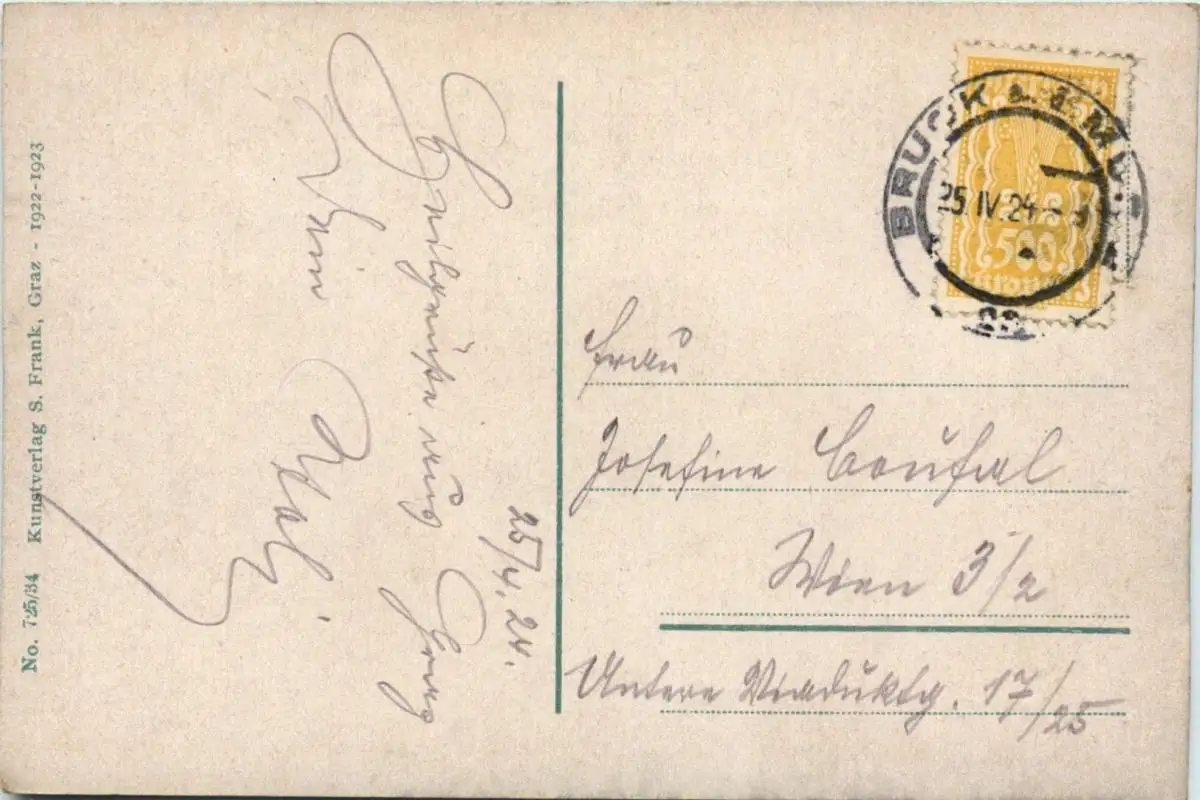 No. 725/34 Kunstverlag S. Frank, Graz - 1922-1923
25/4. 24.
aus Graz
Dein
BRUCK a. d. MUR
25. IV. 24
500
Frau
Josefine Boufal
Wien 3/2
Untere Viaduktg. 17/25